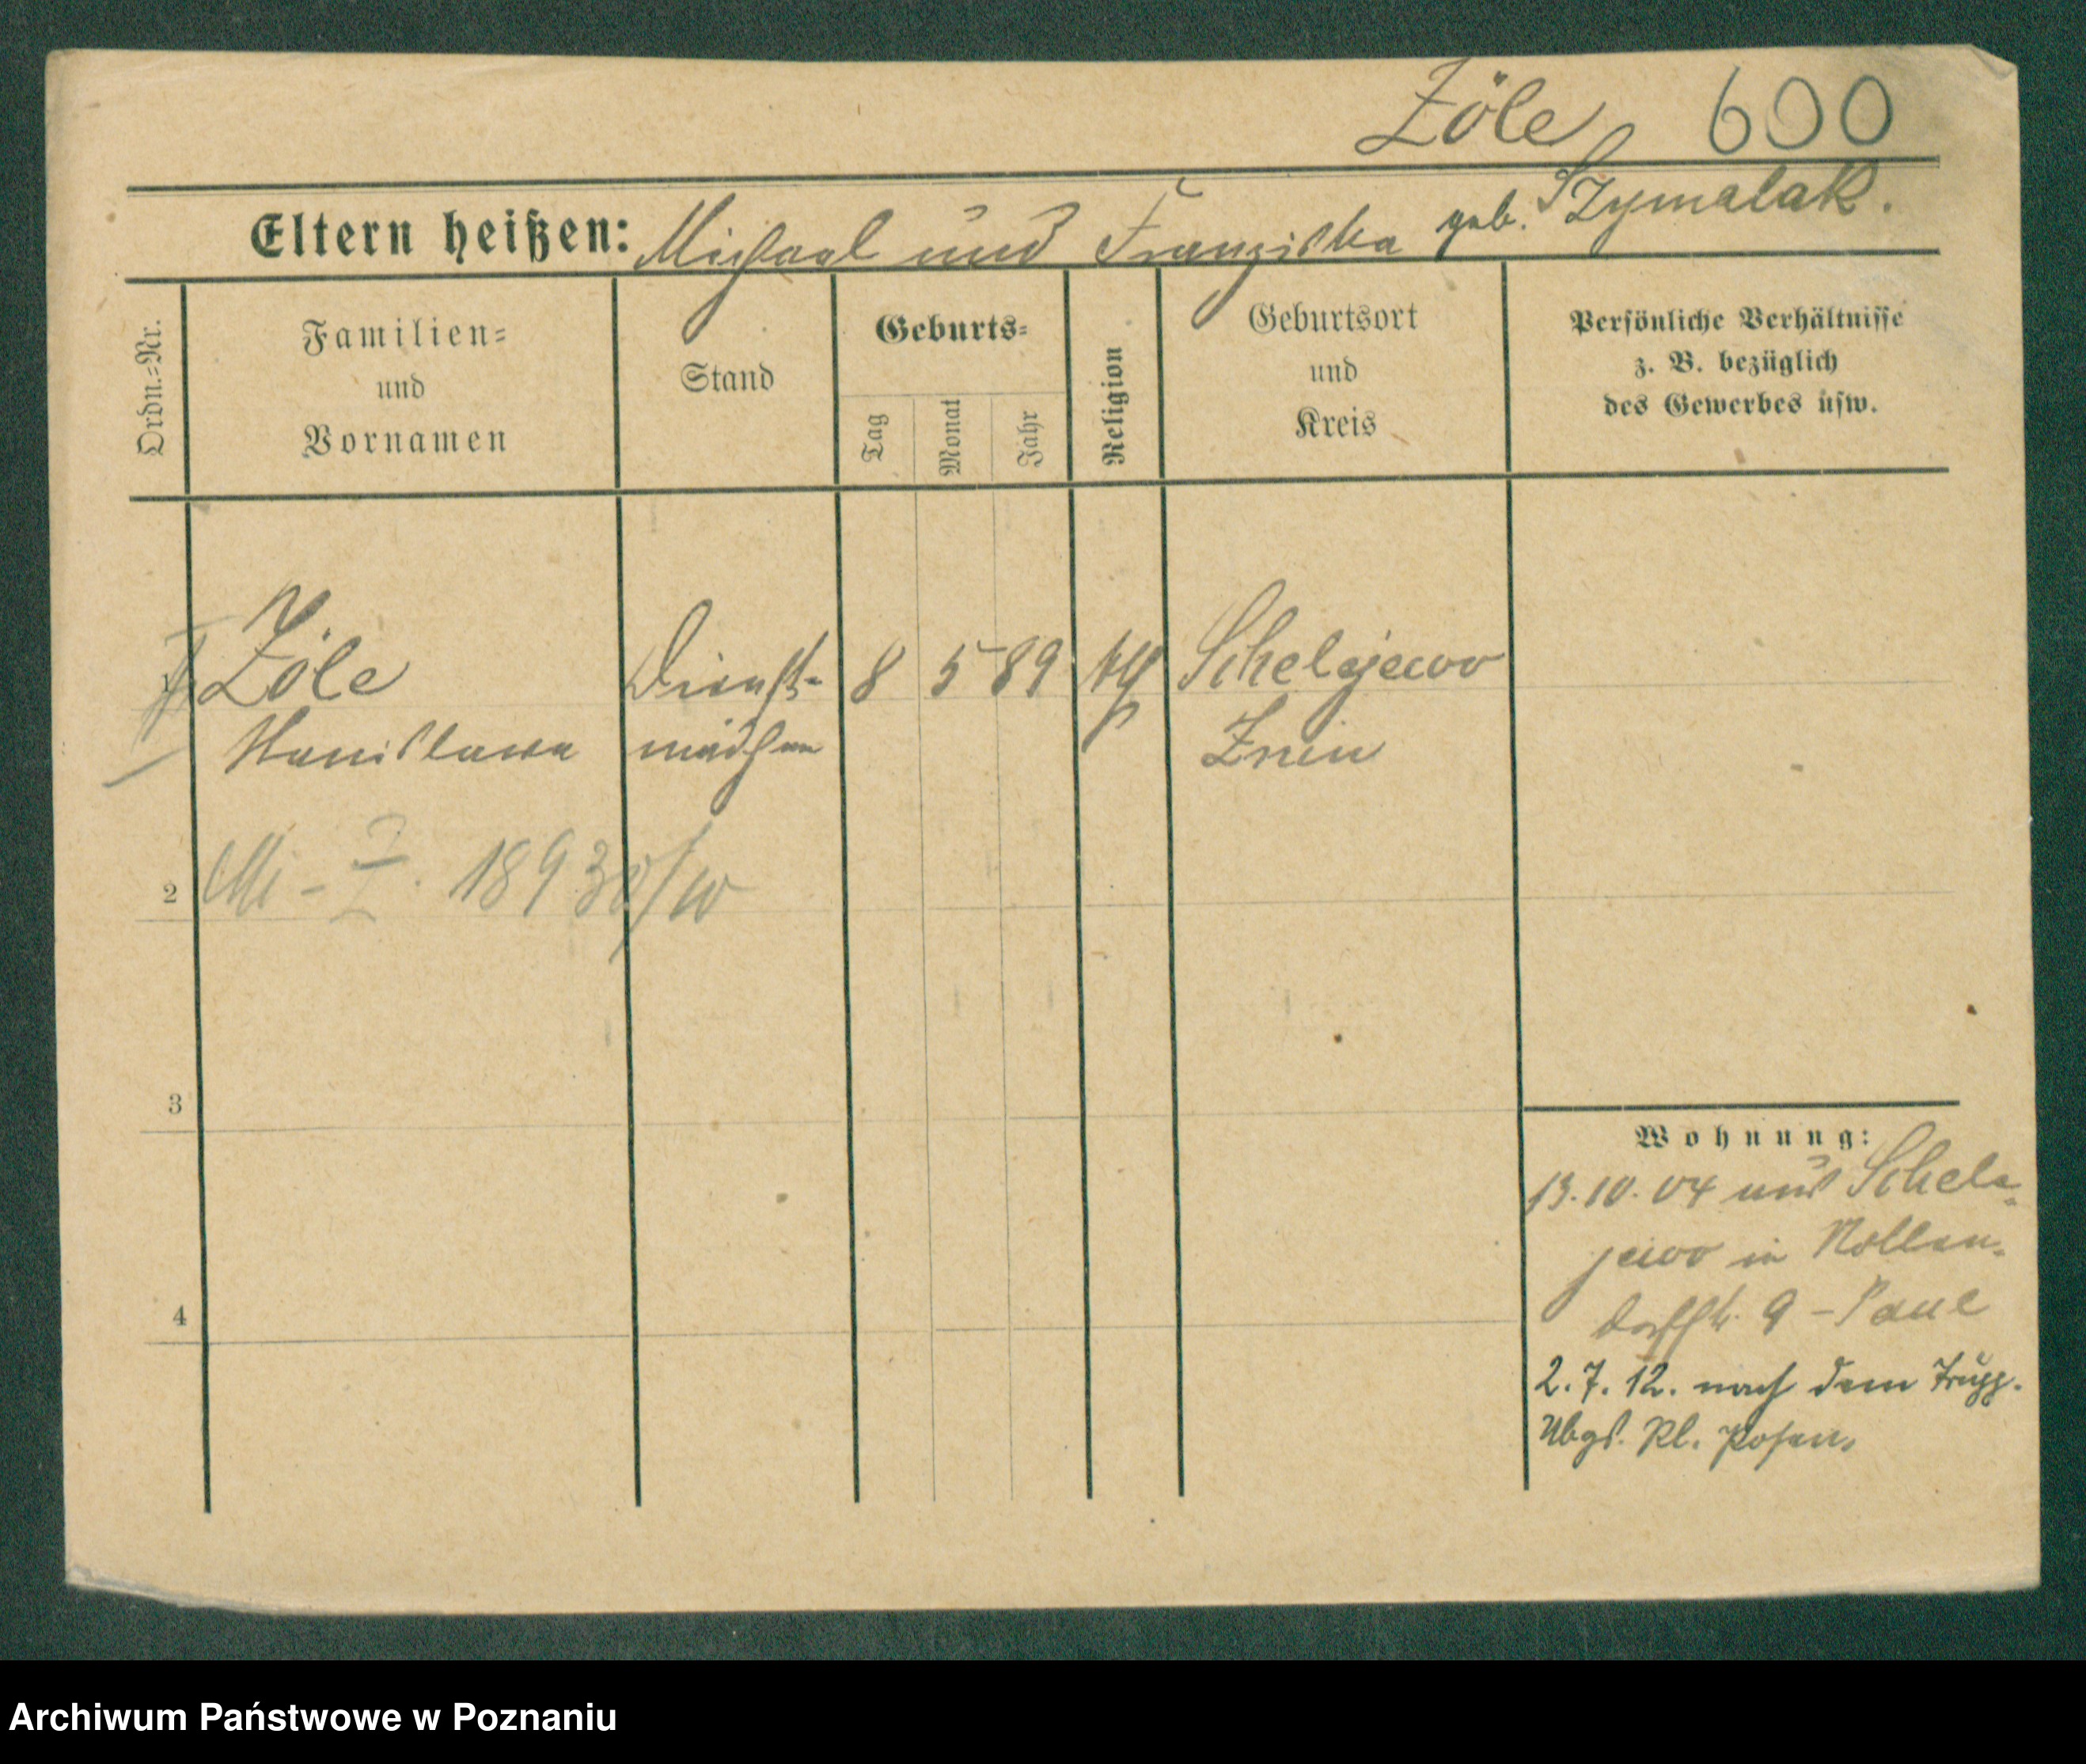 Zöle 600
Eltern heißen: Michael und Franziska geb. Szymalak.
Ordn.-Nr.
Familien-
und
Vornamen
Stand
Geburts-
Tag
Monat
Jahr
Religion
Geburtsort
und
Kreis
Persönliche Verhältnisse
z. B. bezüglich
des Gewerbes usw.
Zöle Dienst- 8 5 89 kth Schelejewo
Stanislawa mädchen Znin
2 1893
3
4
Wohnung:
13.10.04 aus Schele-
jewo in Nollen-
dorfstr. 9 – Paul
2.7.12. nach dem Trupp.
Ubgs. Pl. Posen.
Archiwum Państwowe w Poznaniu